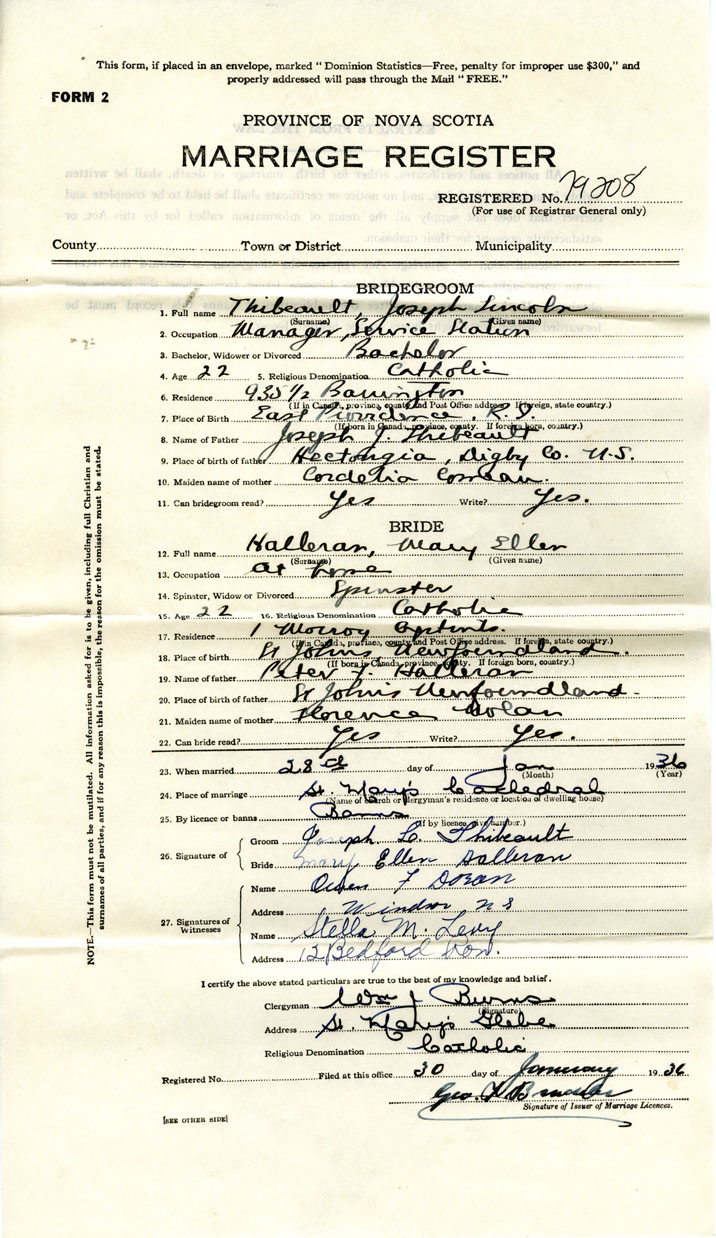 This form, if placed in an envelope, marked “Dominion Statistics—Free, penalty for improper use $300,” and
properly addressed will pass through the Mail “FREE.”
FORM 2
PROVINCE OF NOVA SCOTIA
MARRIAGE REGISTER
REGISTERED No. 79208
(For use of Registrar General only)
County Town or District Municipality
BRIDEGROOM
1. Full name Thibeault, Joseph Lincoln
(Surname) (Given name)
2. Occupation Manager, Service Station
3. Bachelor, Widower or Divorced Bachelor
4. Age 22 5. Religious Denomination Catholic
6. Residence 935½ Barrington
(If in Canada, province, county and Post Office address. If foreign, state country.)
7. Place of Birth East Providence, R.D.
(If born in Canada, province, county. If foreign born, country.)
8. Name of Father Joseph J. Thibeault
9. Place of birth of father Hectongia, Digby Co. N.S.
10. Maiden name of mother Cordelia Comeau
11. Can bridegroom read? Yes Write? Yes.
BRIDE
12. Full name Halleran, Mary Ellen
(Surname) (Given name)
13. Occupation at home
14. Spinster, Widow or Divorced Spinster
15. Age 22 16. Religious Denomination Catholic
17. Residence 1
(If in Canada, province, county and Post Office address. If foreign, state country.)
18. Place of birth St Johns, Newfoundland.
(If born in Canada, province, county. If foreign born, country.)
19. Name of father Peter J. Halleran
20. Place of birth of father St John's Newfoundland.
21. Maiden name of mother Florence Nolan
22. Can bride read? Yes Write? Yes.
23. When married 28th day of Jan 1936
(Month) (Year)
24. Place of marriage St. Mary's Cathedral
(Name of church or clergyman's residence or location of dwelling house)
25. By licence or banns Banns
(If by licence, give number.)
26. Signature of
Groom Joseph L. Thibeault
Bride Mary Ellen Halleran
27. Signatures of Witnesses
Name Owen F Doran
Address Windsor N S
Name Stella M. Levy
Address 12 Bedford Row.
I certify the above stated particulars are true to the best of my knowledge and belief.
Clergyman Wm J Burns
(Signature)
Address St. Mary's Glebe
Religious Denomination Catholic
Registered No. Filed at this office 30 day of January 1936
Signature of Issuer of Marriage Licences.
[SEE OTHER SIDE]
NOTE.—This form must not be mutilated. All information asked for is to be given, including full Christian and
surnames of all parties, and if for any reason this is impossible, the reason for the omission must be stated.